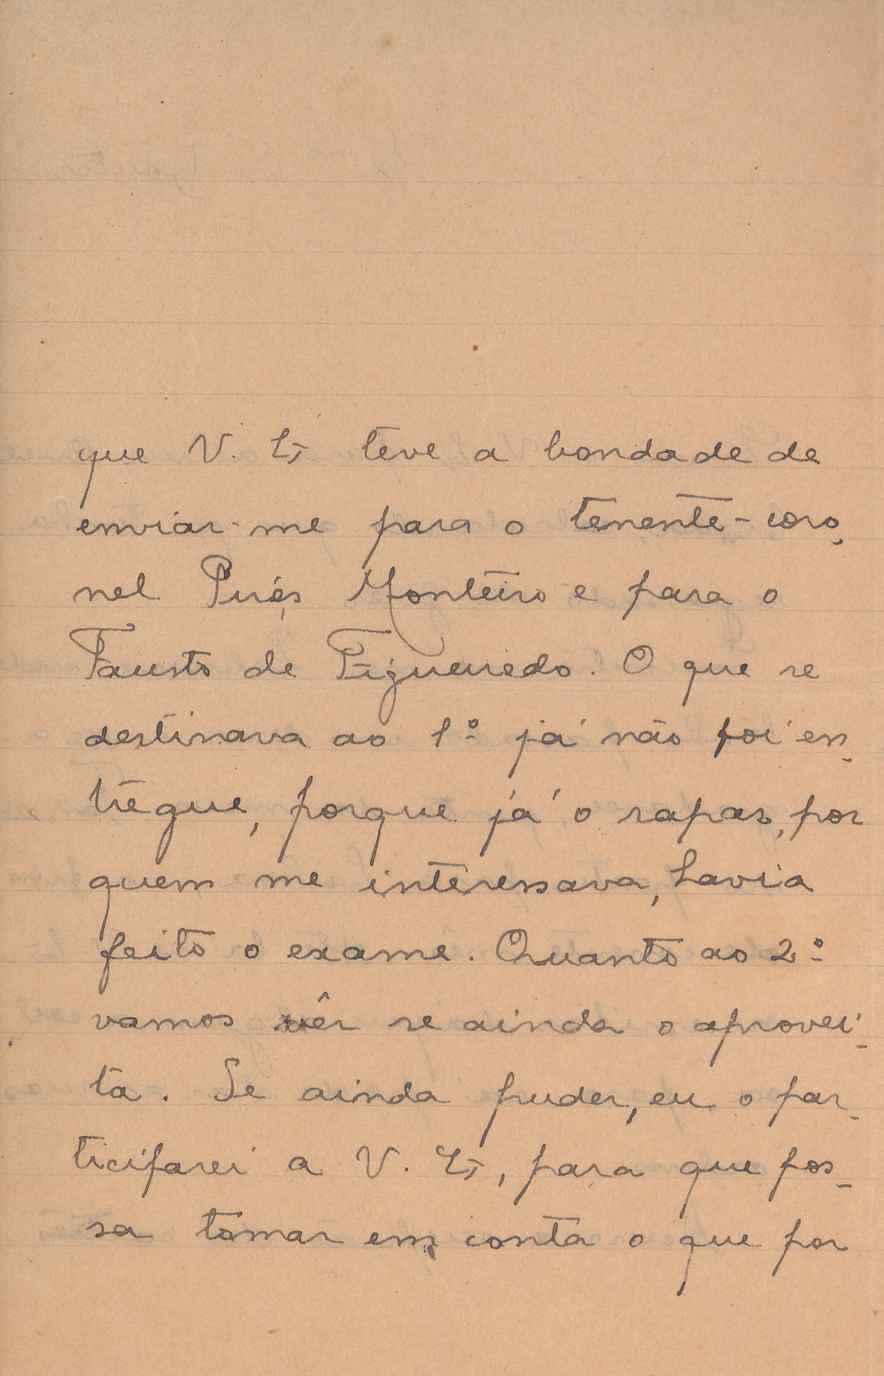 que V. Ex. teve a bondade de
enviar-me para o tenente-coro-
nel Pires Monteiro e para o
Fausto de Figueiredo. O que se
destinava ao 1º já não foi en-
tregue, porque já o rapaz, por
quem me interessava, havia
feito o exame. Quanto ao 2º
vamos vêr se ainda o aprovei-
ta. Se ainda puder, eu o par-
ticiparei a V. Ex., para que pos-
sa tomar em conta o que por